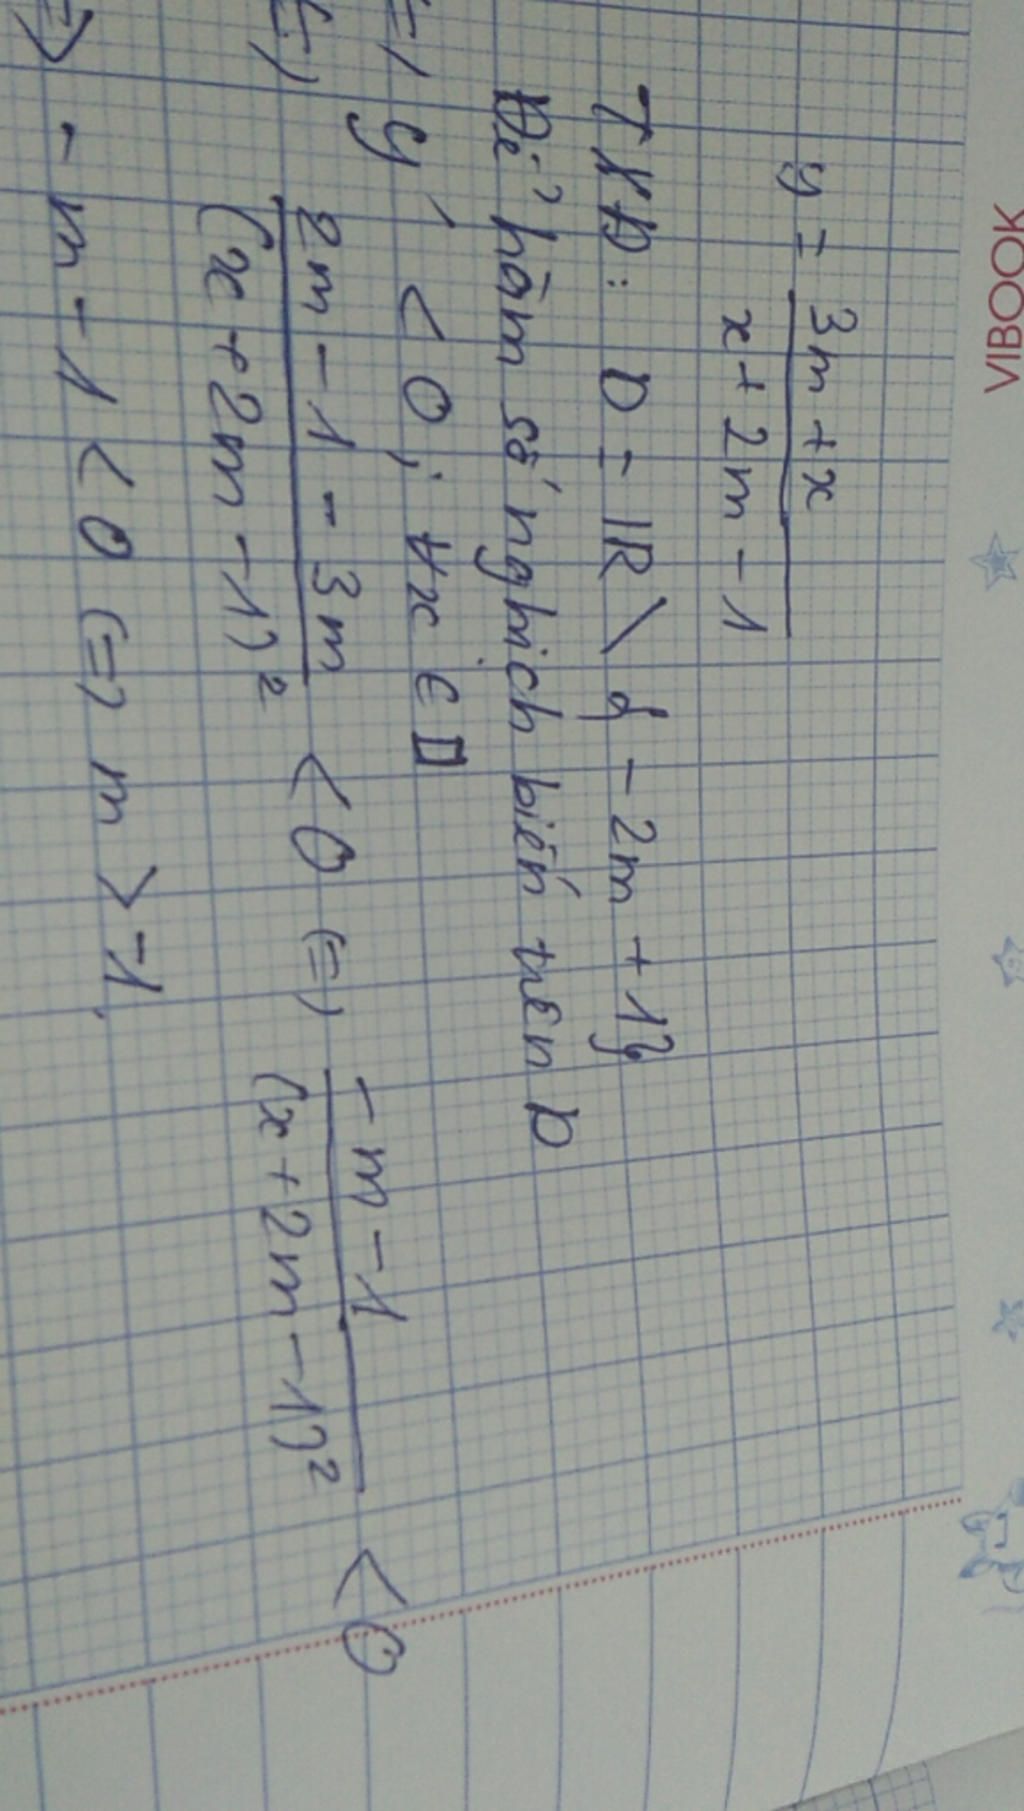 VIBOOK
y = 3m + x / x + 2m - 1
TXĐ: D = ℝ \ { -2m + 1}
Để hàm số nghịch biến trên D
=) y' < 0 ; ∀x ∈ D
(=) 2m - 1 - 3m / (x + 2m - 1)² < 0 (=) -m - 1 / (x + 2m - 1)² < 0
=> - m - 1 < 0 (=) m > -1.